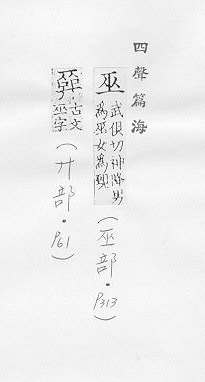 四聲篇海
巫 武俱切神降男
爲巫女爲覡
(巫部·P313)
古文
巫字
(廾部·P61)